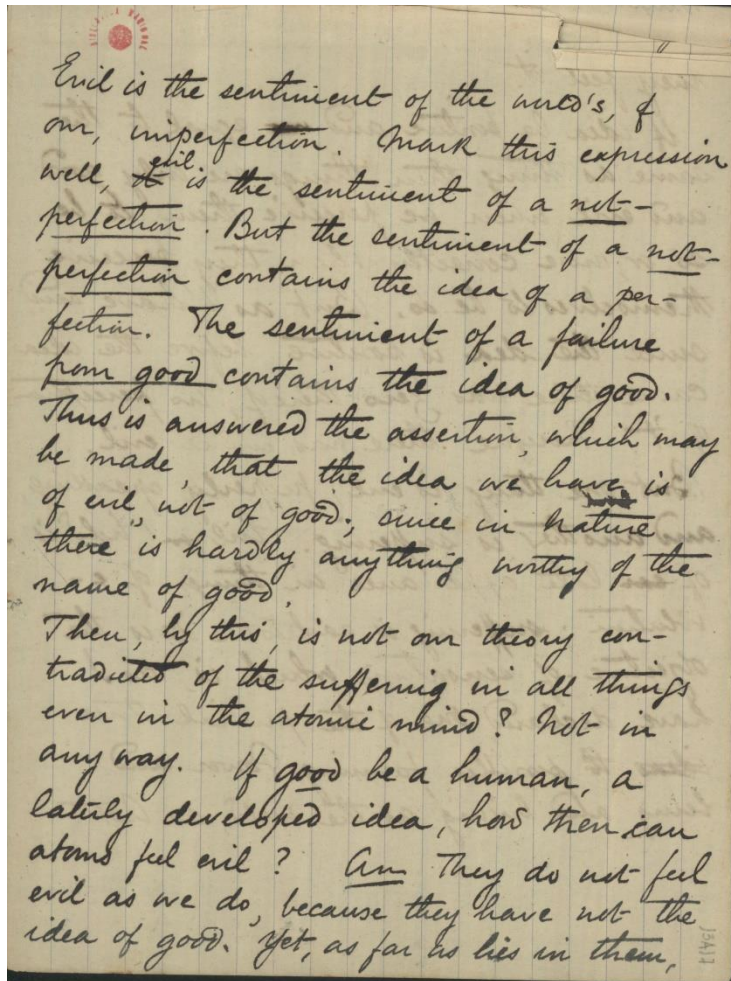 Evil is the sentiment of the world's, of
our, imperfection. Mark this expression
well, it evil is the sentiment of a not-
perfection. But the sentiment of a not-
perfection contains the idea of a per-
fection. The sentiment of a failure
from good contains the idea of good.
Thus is answered the assertion, which may
be made, that the idea we have is
of evil, not of good; since in nature
there is hardly anything worthy of the
name of good.
Then, by this, is not our theory con-
tradicted of the suffering in all things
even in the atomic mind? Not in
any way. If good be a human, a
lately developed idea, how then can
atoms feel evil? An They do not feel
evil as we do, because they have not the
idea of good. Yet, as far as lies in them,